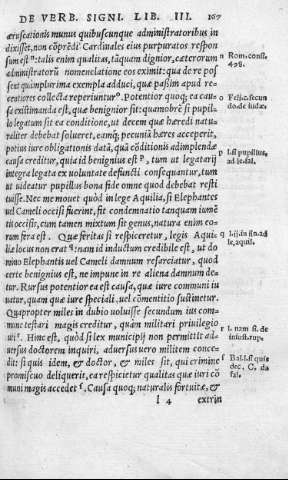 DE VERB. SIGNI. LIB. III. 167
æruscationis munus quibuscunque administratoribus in
dixisset, non cõprẽdi Cardinales eius purpuratos respon
sum est n: talis enim qualitas, tãquam dignior, cæterorum
administratorũ nomenclatione eos eximit: qua de re pos
sent quamplurima exempla adduci, quæ passim apud re-
centiores collecta reperiuntur o. Potentior quoq; ea cau-
sa existimanda est, quæ benignior sit: quamobrẽ si pupil-
li legatum sit ea conditione, ut decem quæ hæredi natu-
raliter debebat solueret, eamq́; pecuniã hæres acceperit,
potius iure obligationis datã, quã cõditionis adimplendæ
causa creditur, quia id benignius est p, tum ut legatarij
integra legata ex voluntate defuncti consequantur, tum
ut uideatur pupillus bona fide omne quod debebat resti
tuisse. Nec me mouet quòd in lege Aquilia, si Elephantes
uel Cameli occisi fuerint, fit condemnatio tanquam iumẽ
tis occisis, cum tamen mixtum sit genus, natura enim eo-
rum fera est. Quæ feritas si respiceretur, legis Aqui-
liæ locus non erat q: nam id inductum credibile est, ut do
mino Elephantis uel Cameli damnum resarciatur, quod
certe benignius est, ne impune in re aliena damnum de-
tur. Rursus potentior ea est causa, quæ iure communi iu
uatur, quam quæ iure speciali, uel cõmentitio sustinetur.
Quapropter miles in dubio uoluisse secundum ius com-
mune testari magis creditur, quàm militari priuilegio
uti r. Hinc est, quòd si lex municipij non permittit ad-
uersus doctorem inquiri, aduersus uero militem conce-
dit: si quis idem, & doctor, & miles sit, qui crimine
promiscuo deliquerit, ea respicietur qualitas quæ iuri cõ
muni magis accedet s. Causa quoq; naturalis fortuitæ, &
I 4 extrin
n Rom. consl.
498.
o Felic. secun
do. de iudæs.
p l. si pupillus.
ad le. fal.
r l. nam si. de
iniust. rup.